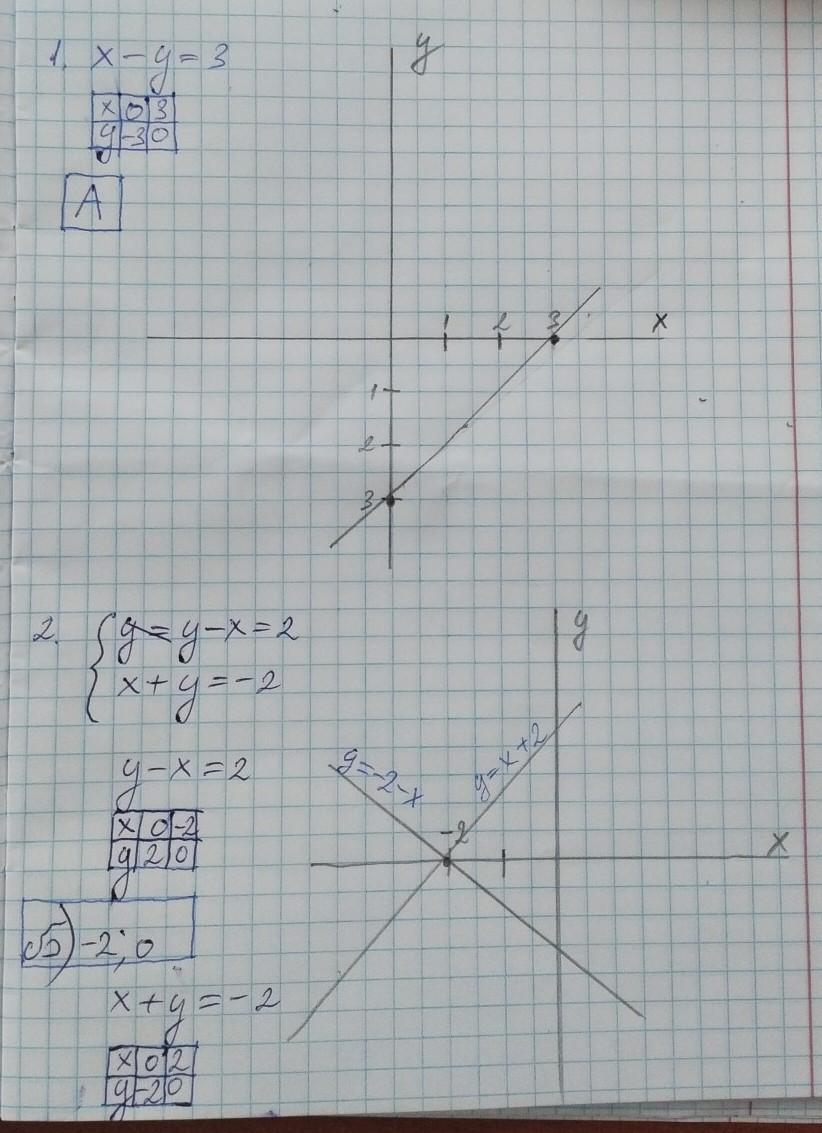 1. x - y = 3
x 0 3
y -3 0
A
y
1 2 3 x
1
2
3
2. { y = y - x = 2
x + y = -2
y - x = 2
x 0 -2
y 2 0
б) -2; 0
x + y = -2
x 0 2
y -2 0
y
y = -2 - x
y = x + 2
-2
x